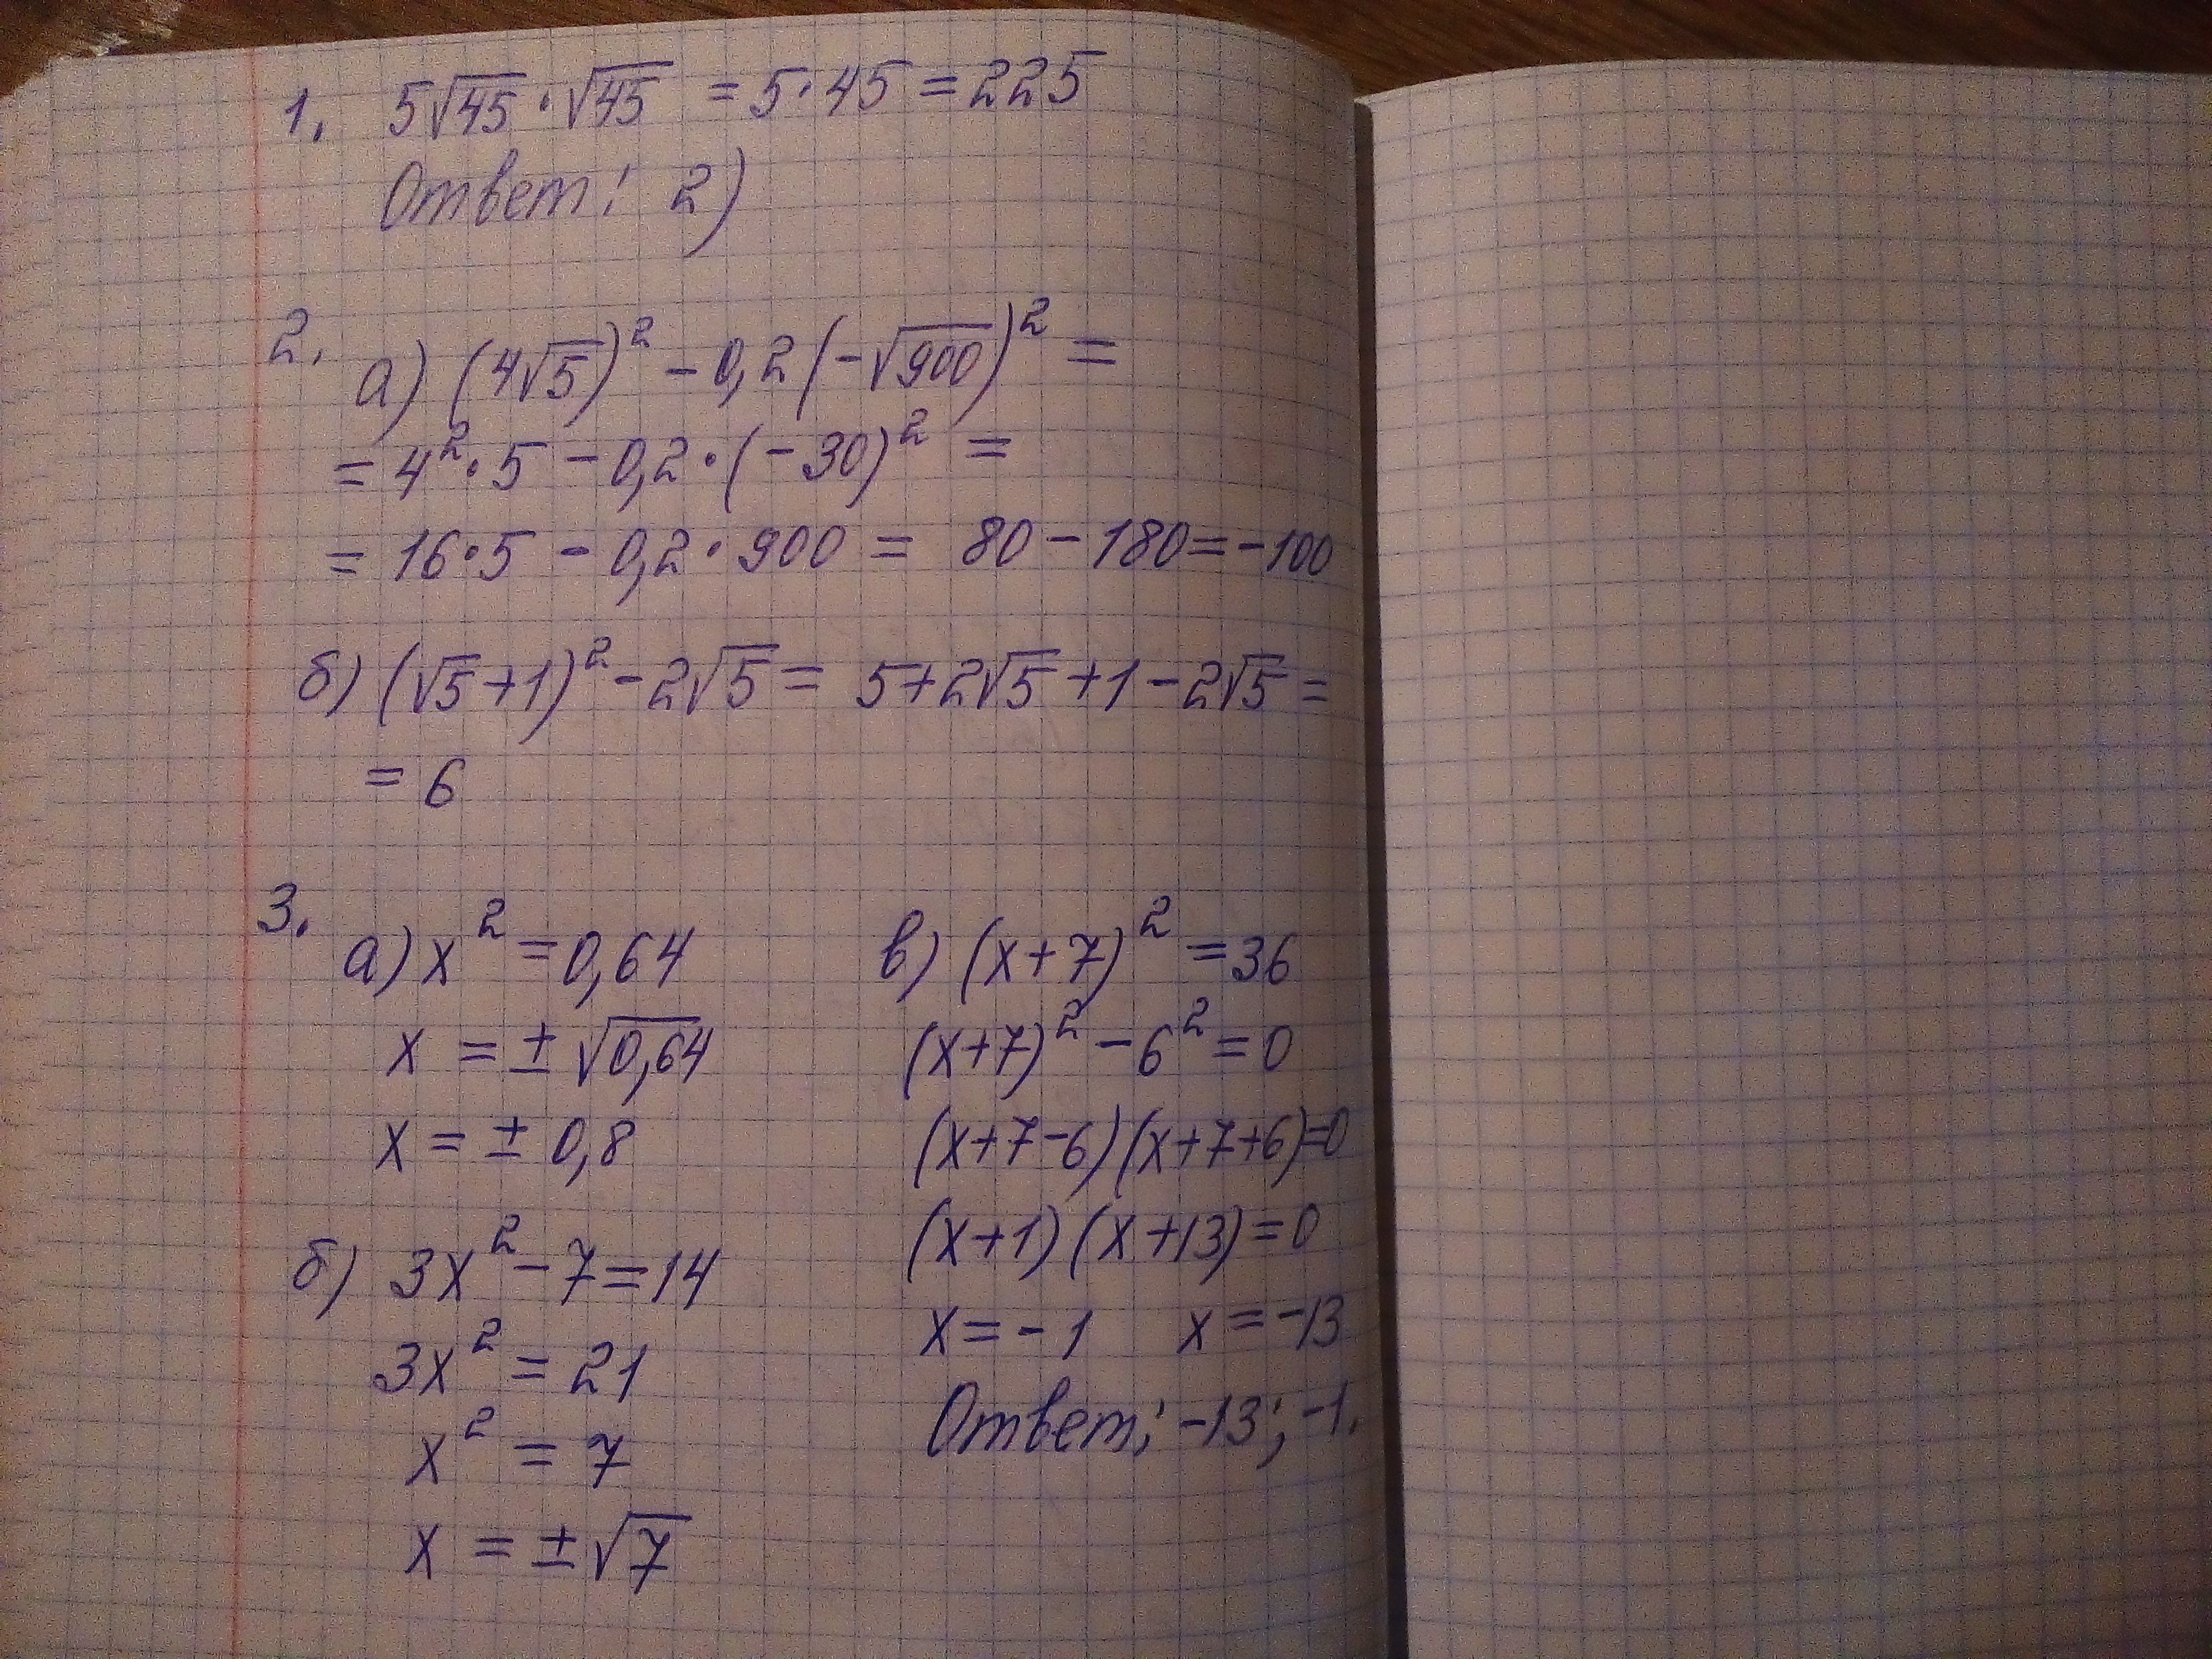 1. 5√45 · √45 = 5·45 = 225
Ответ: 2)
2. а) (4√5)² - 0,2(-√900)² =
= 4²·5 - 0,2·(-30)² =
= 16·5 - 0,2·900 = 80 - 180 = -100
б) (√5+1)² - 2√5 = 5+2√5+1-2√5 =
= 6
3. а) x² = 0,64
x = ± √0,64
x = ± 0,8
б) 3x² - 7 = 14
3x² = 21
x² = 7
x = ±√7
в) (x+7)² = 36
(x+7)² - 6² = 0
(x+7-6)(x+7+6)=0
(x+1)(x+13)=0
x = -1 x = -13
Ответ: -13; -1.